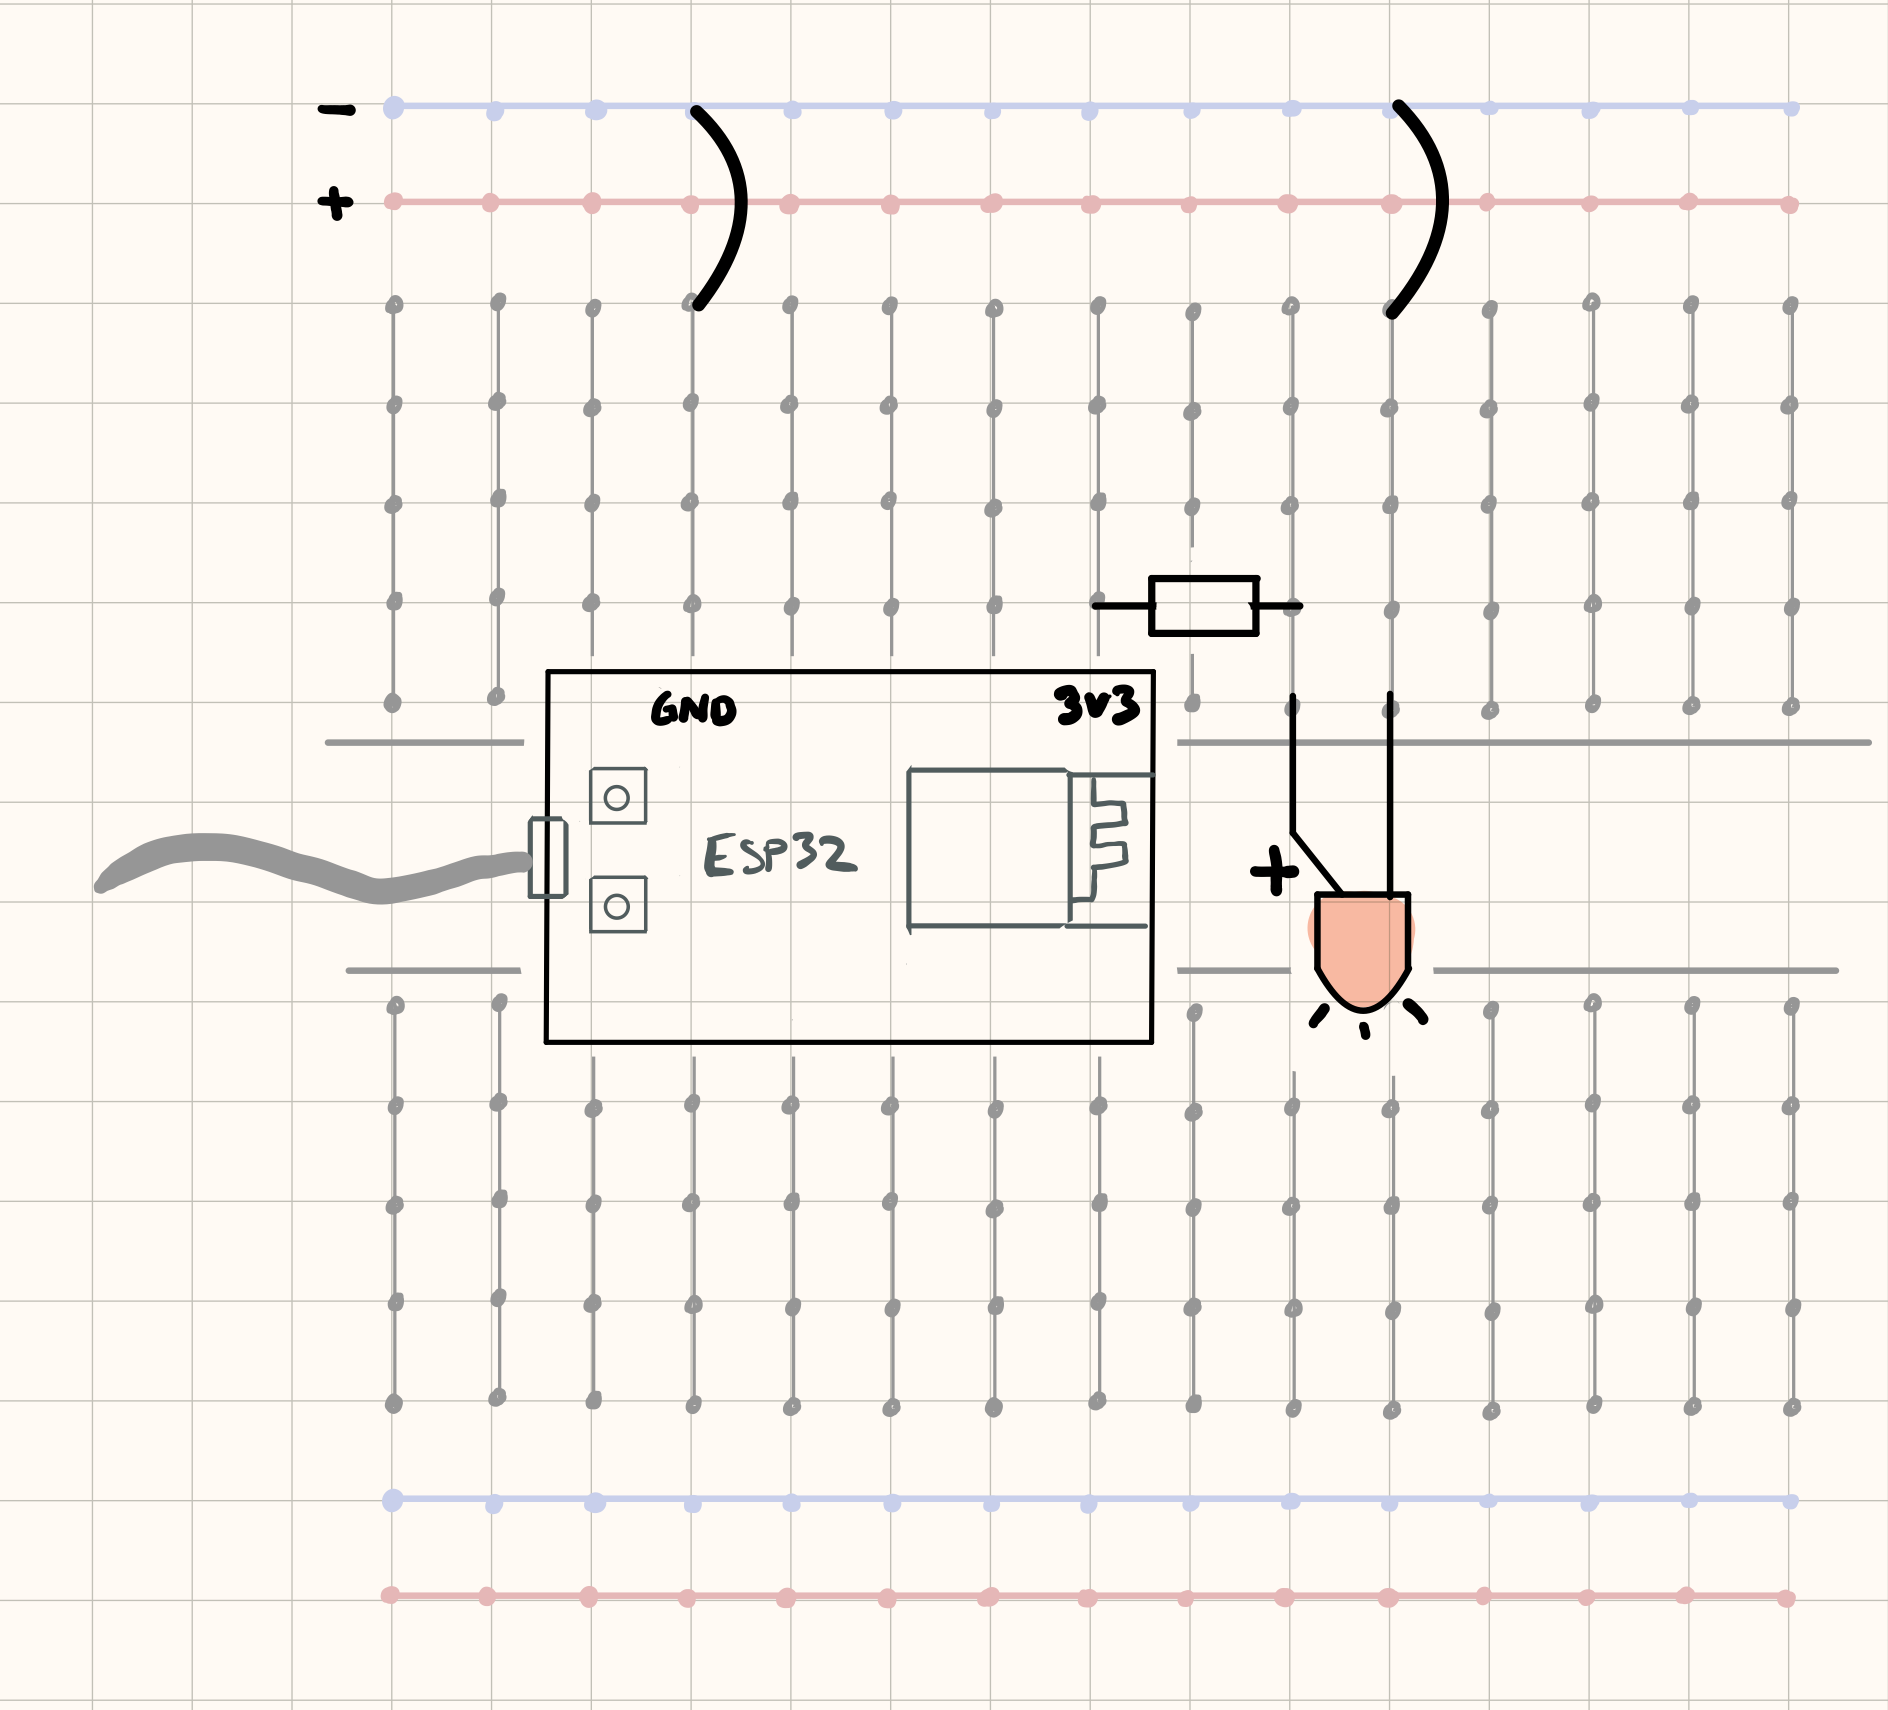 −
+
GND 3V3
ESP32
+